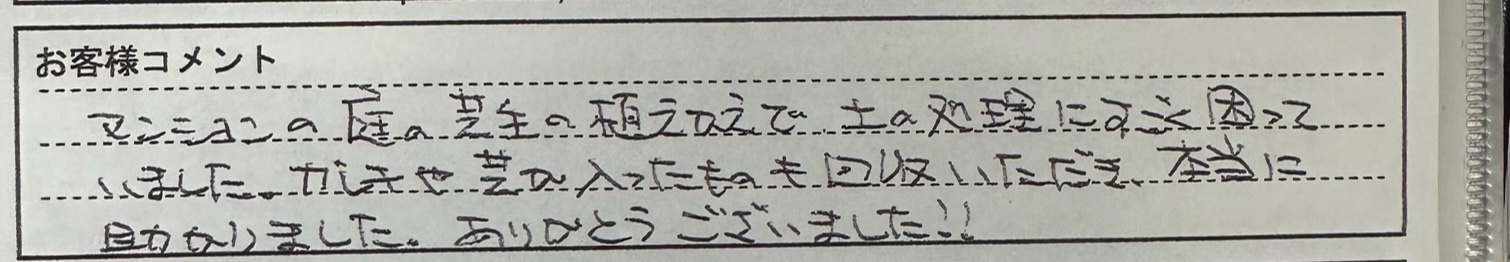 お客様コメント
マンションの庭の芝生の植えかえで、土の処理にすごく困って
いました。がれきや芝が入ったものも回収いただき、本当に
助かりました。ありがとうございました!!